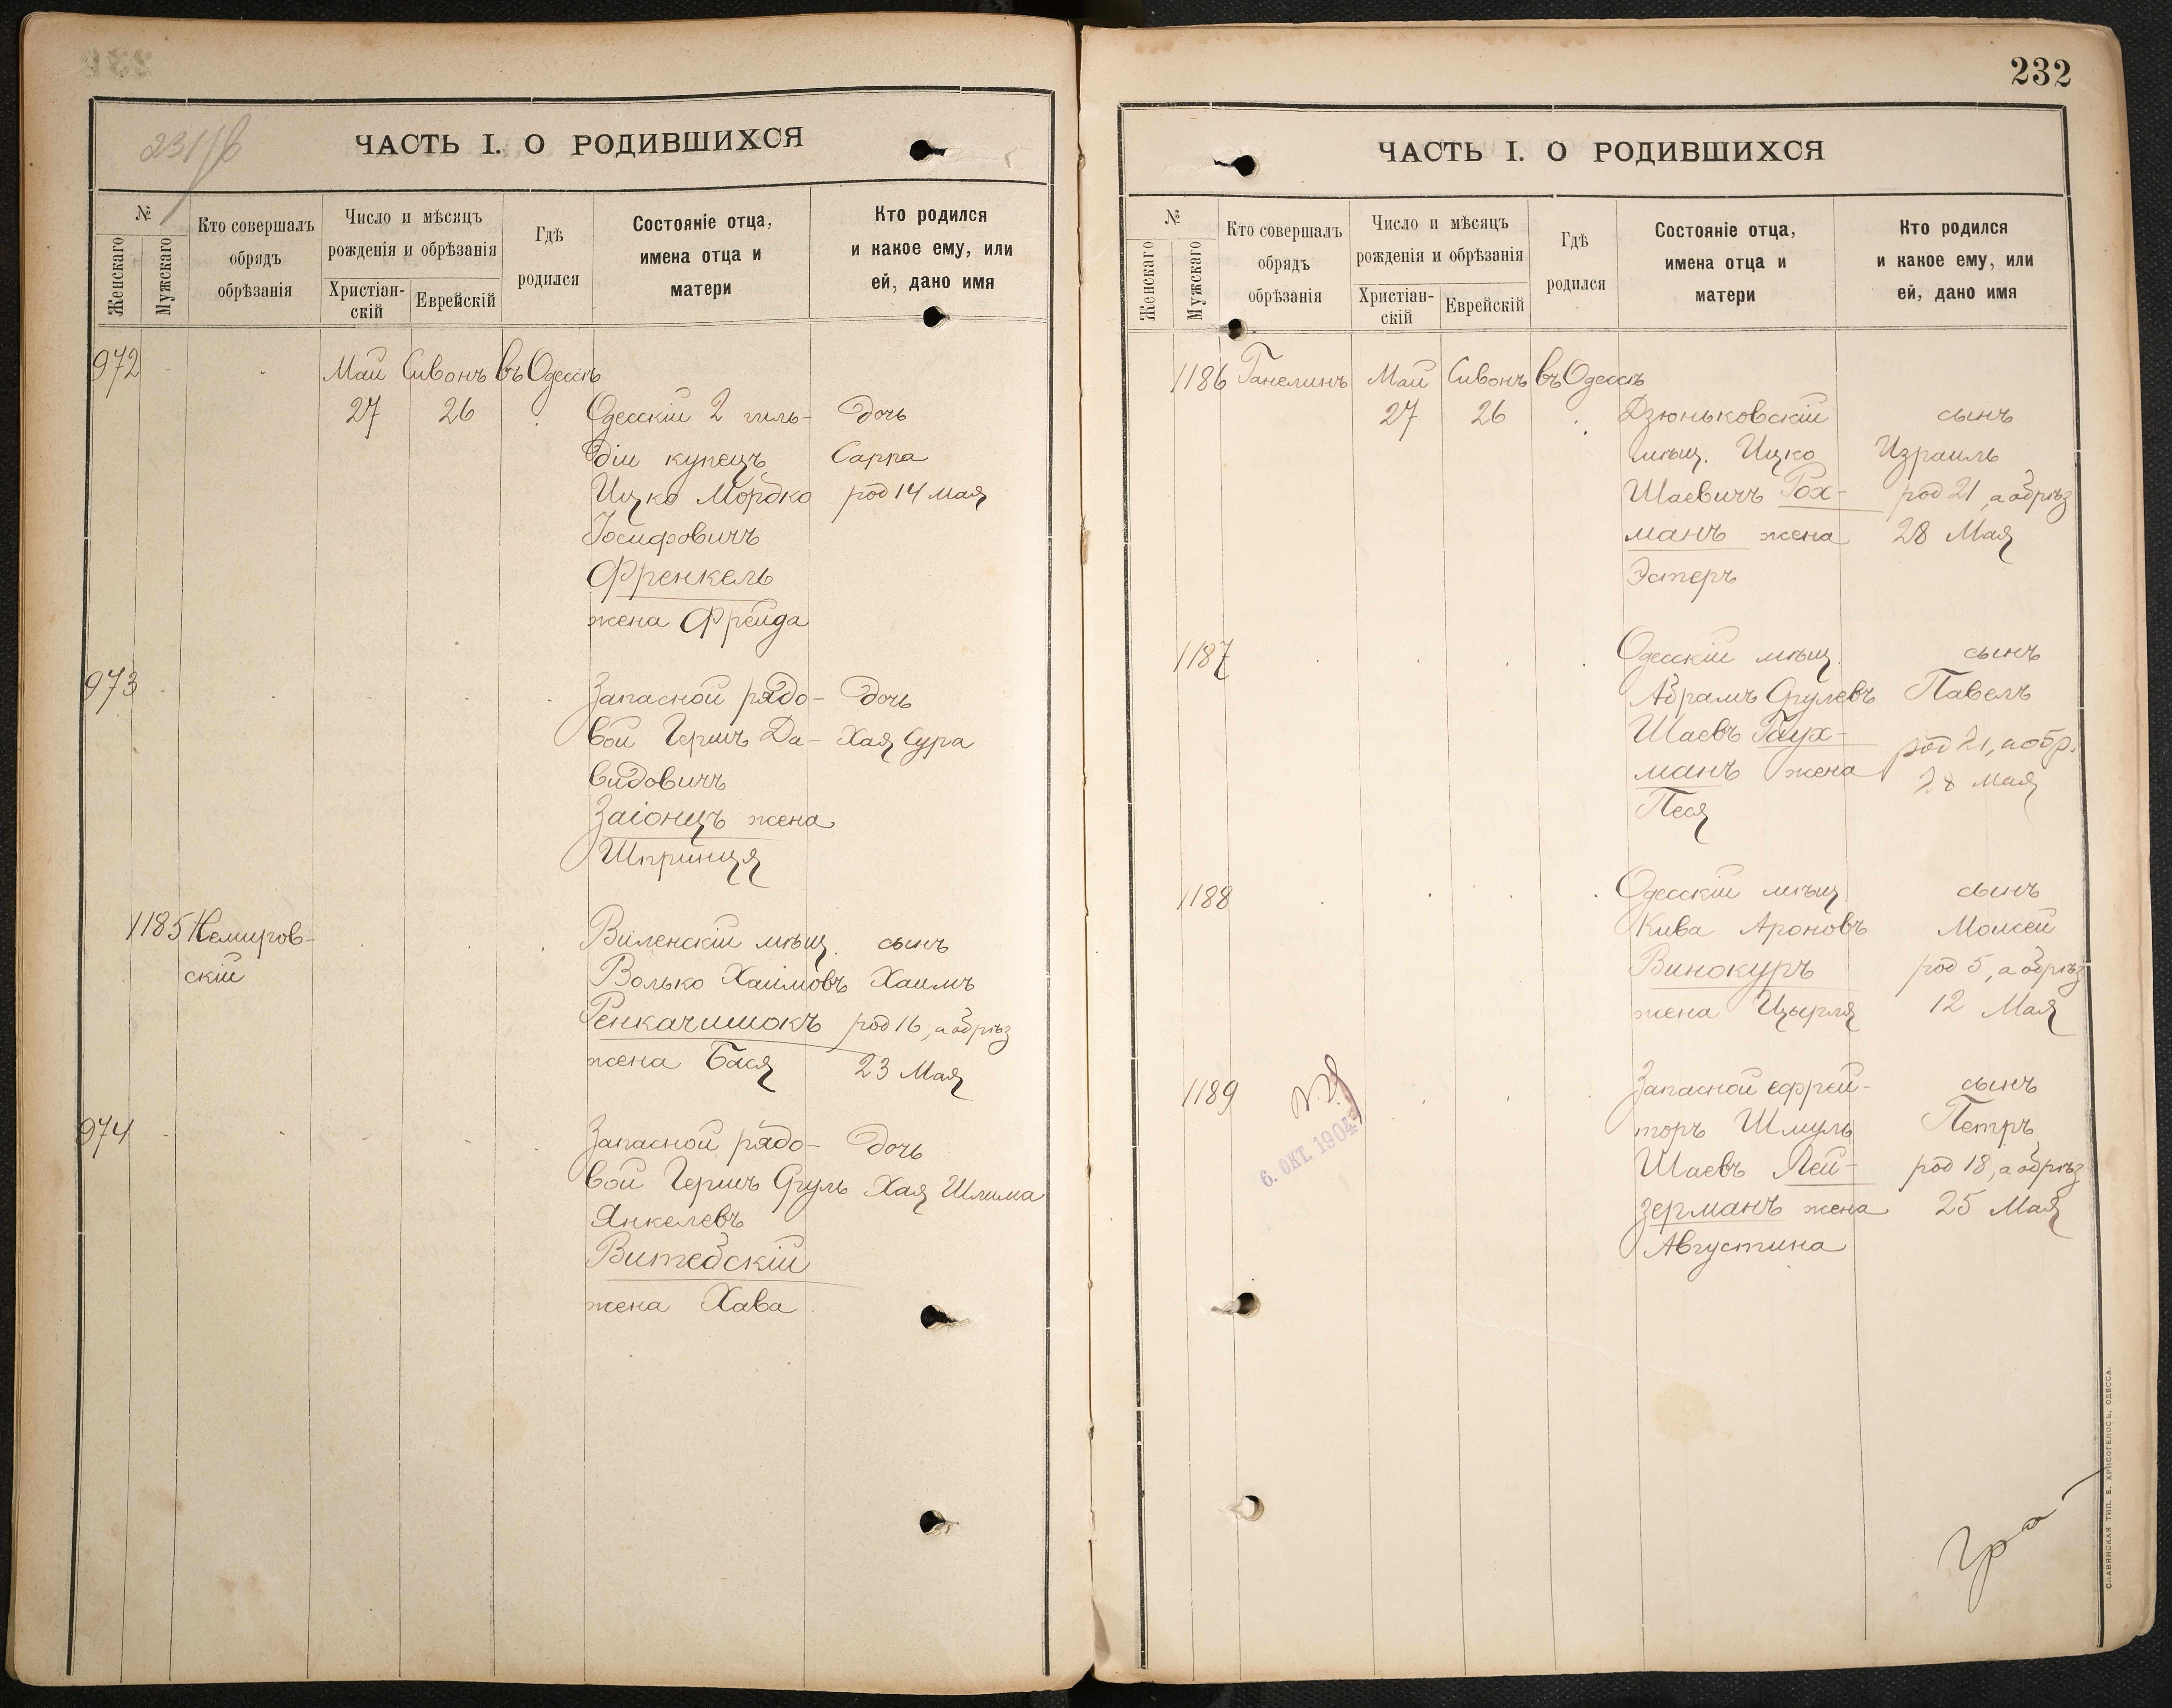 231/б
ЧАСТЬ I. О РОДИВШИХСЯ
№
Женскаго
Мужскаго
Кто совершалъ
обрядъ
обрѣзанія
Число и мѣсяцъ
рожденія и обрѣзанія
Христіан-
скій
Еврейскій
Гдѣ
родился
Состояніе отца,
имена отца и
матери
Кто родился
и какое ему, или
ей, дано имя
972 Май Сивонъ въ Одессѣ
27 26 Одесскій 2 гиль- дочь
діи купецъ Сарра
Ицко Мордко род 14 мая
Іосифовичъ
Френкель
жена Фрейда
973 Запасной рядо- дочь
вой Гершъ Да- Хая Сура
видовичъ
Заіонцъ жена
Шпринця
1185 Немиров- Виленскій мѣщ. сынъ
скій Волько Хаимовъ Хаимъ
Ренкачишокъ род 16, а обрѣз
жена Бася 23 Мая
974 Запасной рядо- дочь
вой Гершъ Сруль Хая Шлима
Янкелевъ
Витебскій
жена Хава
232
ЧАСТЬ I. О РОДИВШИХСЯ
№
Женскаго
Мужскаго
Кто совершалъ
обрядъ
обрѣзанія
Число и мѣсяцъ
рожденія и обрѣзанія
Христіан-
скій
Еврейскій
Гдѣ
родился
Состояніе отца,
имена отца и
матери
Кто родился
и какое ему, или
ей, дано имя
1186 Ганелинъ Май Сивонъ въ Одессѣ
27 26 Дзюньковскій сынъ
мѣщ. Ицко Израиль
Шаевичъ Рох- род 21, а обрѣз
манъ жена 28 Мая
Эстеръ
1187 Одесскій мѣщ. сынъ
Абрамъ Срулевъ Павелъ
Шаевъ Гаух- род 21, а обр.
манъ жена 28 мая
Песя
1188 Одесскій мѣщ. сынъ
Кива Ароновъ Моисей
Винокуръ род 5, а обрѣз
жена Цырля 12 Мая
1189 Запасной ефрей- сынъ
торъ Шмуль Петръ
6. ОКТ. 1904
Шаевъ Лей- род 18, а обрѣз
зерманъ жена 25 Мая
Августина
СЛАВЯНСКАЯ ТИП. Е. ХРИСОГЕЛОСЪ, ОДЕССА.